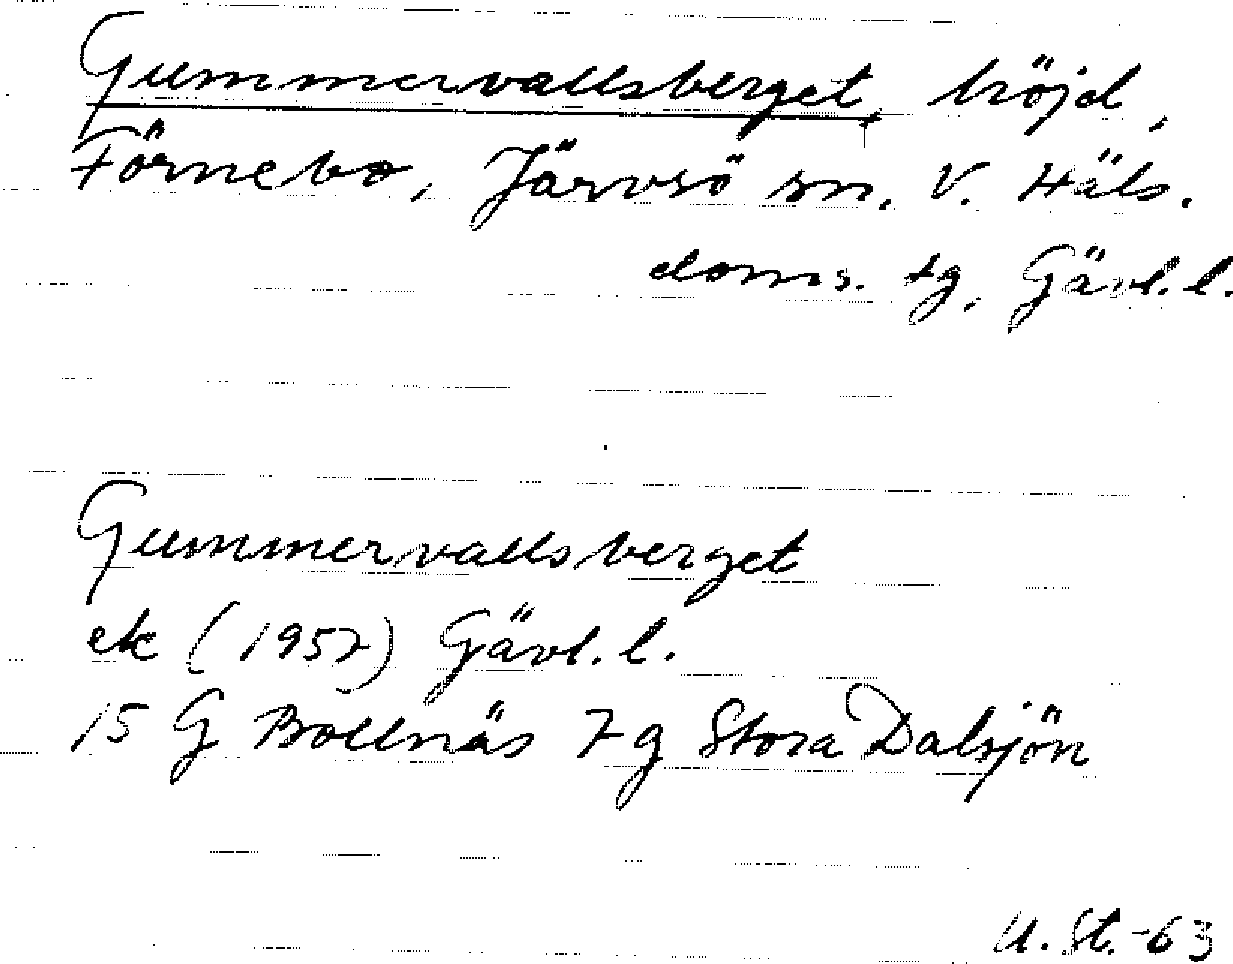 Gummervallsberget, höjd,
Förnebo, Järvsö sn, V. Häls.
doms. tg, Gävl. l.
Gummervallsberget
ek (1957) Gävl. l.
15 G Bollnäs 7 g Stora Dalsjön
U. St. -63